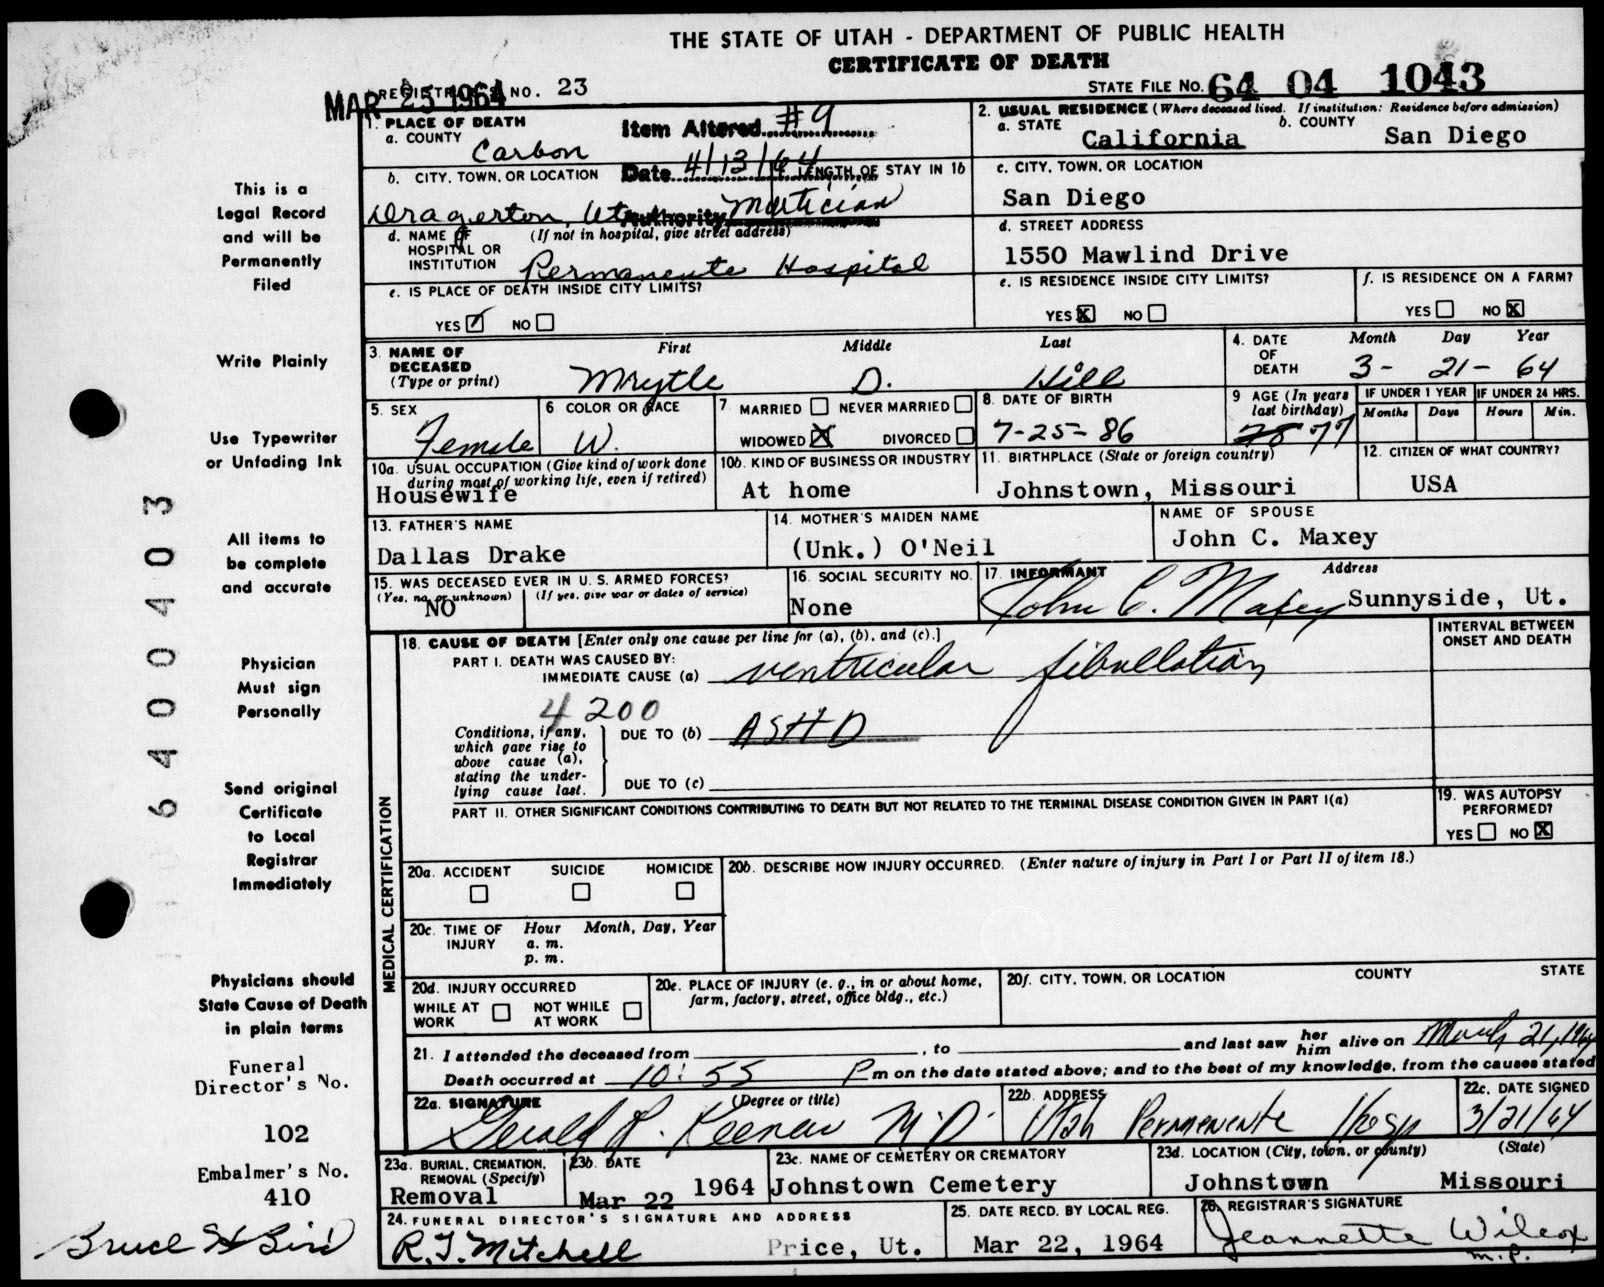 THE STATE OF UTAH - DEPARTMENT OF PUBLIC HEALTH
CERTIFICATE OF DEATH
REGISTRAR'S NO. 23
MAR 25 1964
STATE FILE NO. 64 04 1043
1. PLACE OF DEATH
a. COUNTY
Carbon
Item Altered #9
Date 4/13/64
Authority Mortician
b. CITY, TOWN, OR LOCATION
LENGTH OF STAY IN 1b
Dragerton, Utah
d. NAME OF HOSPITAL OR INSTITUTION
(If not in hospital, give street address)
Permanente Hospital
e. IS PLACE OF DEATH INSIDE CITY LIMITS?
YES NO
2. USUAL RESIDENCE (Where deceased lived. If institution: Residence before admission)
a. STATE California
b. COUNTY San Diego
c. CITY, TOWN, OR LOCATION
San Diego
d. STREET ADDRESS
1550 Mawlind Drive
e. IS RESIDENCE INSIDE CITY LIMITS?
YES X NO
f. IS RESIDENCE ON A FARM?
YES NO X
3. NAME OF DECEASED (Type or print)
First Middle Last
Mrytle D. Hill
4. DATE OF DEATH
Month Day Year
3- 21- 64
5. SEX
Female
6 COLOR OR RACE
W.
7. MARRIED NEVER MARRIED
WIDOWED X DIVORCED
8. DATE OF BIRTH
7-25-86
9 AGE (In years last birthday)
78 77
IF UNDER 1 YEAR IF UNDER 24 HRS.
Months Days Hours Min.
10a. USUAL OCCUPATION (Give kind of work done during most of working life, even if retired)
Housewife
10b. KIND OF BUSINESS OR INDUSTRY
At home
11. BIRTHPLACE (State or foreign country)
Johnstown, Missouri
12. CITIZEN OF WHAT COUNTRY?
USA
13. FATHER'S NAME
Dallas Drake
14. MOTHER'S MAIDEN NAME
(Unk.) O'Neil
NAME OF SPOUSE
John C. Maxey
15. WAS DECEASED EVER IN U. S. ARMED FORCES?
(Yes, no, or unknown) (If yes, give war or dates of service)
NO
16. SOCIAL SECURITY NO.
None
17. INFORMANT Address
John C. Maxey Sunnyside, Ut.
18. CAUSE OF DEATH [Enter only one cause per line for (a), (b), and (c).]
INTERVAL BETWEEN ONSET AND DEATH
PART I. DEATH WAS CAUSED BY:
IMMEDIATE CAUSE (a) ventricular fibrillation
4 200
Conditions, if any, which gave rise to above cause (a), stating the underlying cause last.
DUE TO (b) ASHD
DUE TO (c)
PART II. OTHER SIGNIFICANT CONDITIONS CONTRIBUTING TO DEATH BUT NOT RELATED TO THE TERMINAL DISEASE CONDITION GIVEN IN PART I(a)
19. WAS AUTOPSY PERFORMED?
YES NO X
MEDICAL CERTIFICATION
20a. ACCIDENT SUICIDE HOMICIDE
20b. DESCRIBE HOW INJURY OCCURRED. (Enter nature of injury in Part I or Part II of item 18.)
20c. TIME OF INJURY Hour Month, Day, Year
a. m.
p. m.
20d. INJURY OCCURRED
WHILE AT WORK NOT WHILE AT WORK
20e. PLACE OF INJURY (e. g., in or about home, farm, factory, street, office bldg., etc.)
20f. CITY, TOWN, OR LOCATION COUNTY STATE
21. I attended the deceased from , to and last saw her him alive on March 21, 1964
Death occurred at 10:55 P m on the date stated above; and to the best of my knowledge, from the causes stated
22a. SIGNATURE (Degree or title)
Gerald R. Keenan M.D.
22b. ADDRESS
Utah Permanente Hosp
22c. DATE SIGNED
3/21/64
23a. BURIAL, CREMATION, REMOVAL (Specify)
Removal
23b. DATE
Mar 22 1964
23c. NAME OF CEMETERY OR CREMATORY
Johnstown Cemetery
23d. LOCATION (City, town, or county) (State)
Johnstown Missouri
24. FUNERAL DIRECTOR'S SIGNATURE AND ADDRESS
R.T. Mitchell Price, Ut.
25. DATE RECD. BY LOCAL REG.
Mar 22, 1964
26. REGISTRAR'S SIGNATURE
Jeannette Wilcox
m.p.
This is a
Legal Record
and will be
Permanently
Filed
Write Plainly
Use Typewriter
or Unfading Ink
All items to
be complete
and accurate
Physician
Must sign
Personally
Send original
Certificate
to Local
Registrar
Immediately
Physicians should
State Cause of Death
in plain terms
Funeral
Director's No.
102
Embalmer's No.
410
Bruce H Bird
6400403